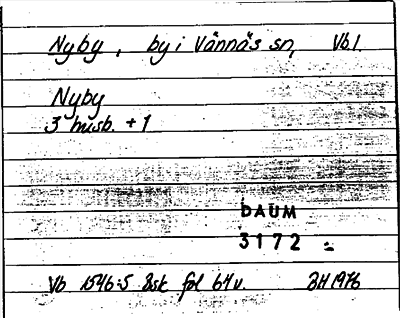 Nyby, by i Vännäs sn, Vb.l.
Nyby
3 husb. + 1
DAUM
3172
Vb 1546:5 Äsk fol 64v. BH 1976